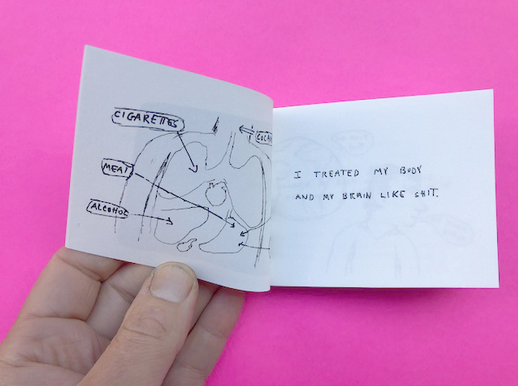 CIGARETTES
MEAT
ALCOHOL
I TREATED MY BODY
AND MY BRAIN LIKE SHIT.